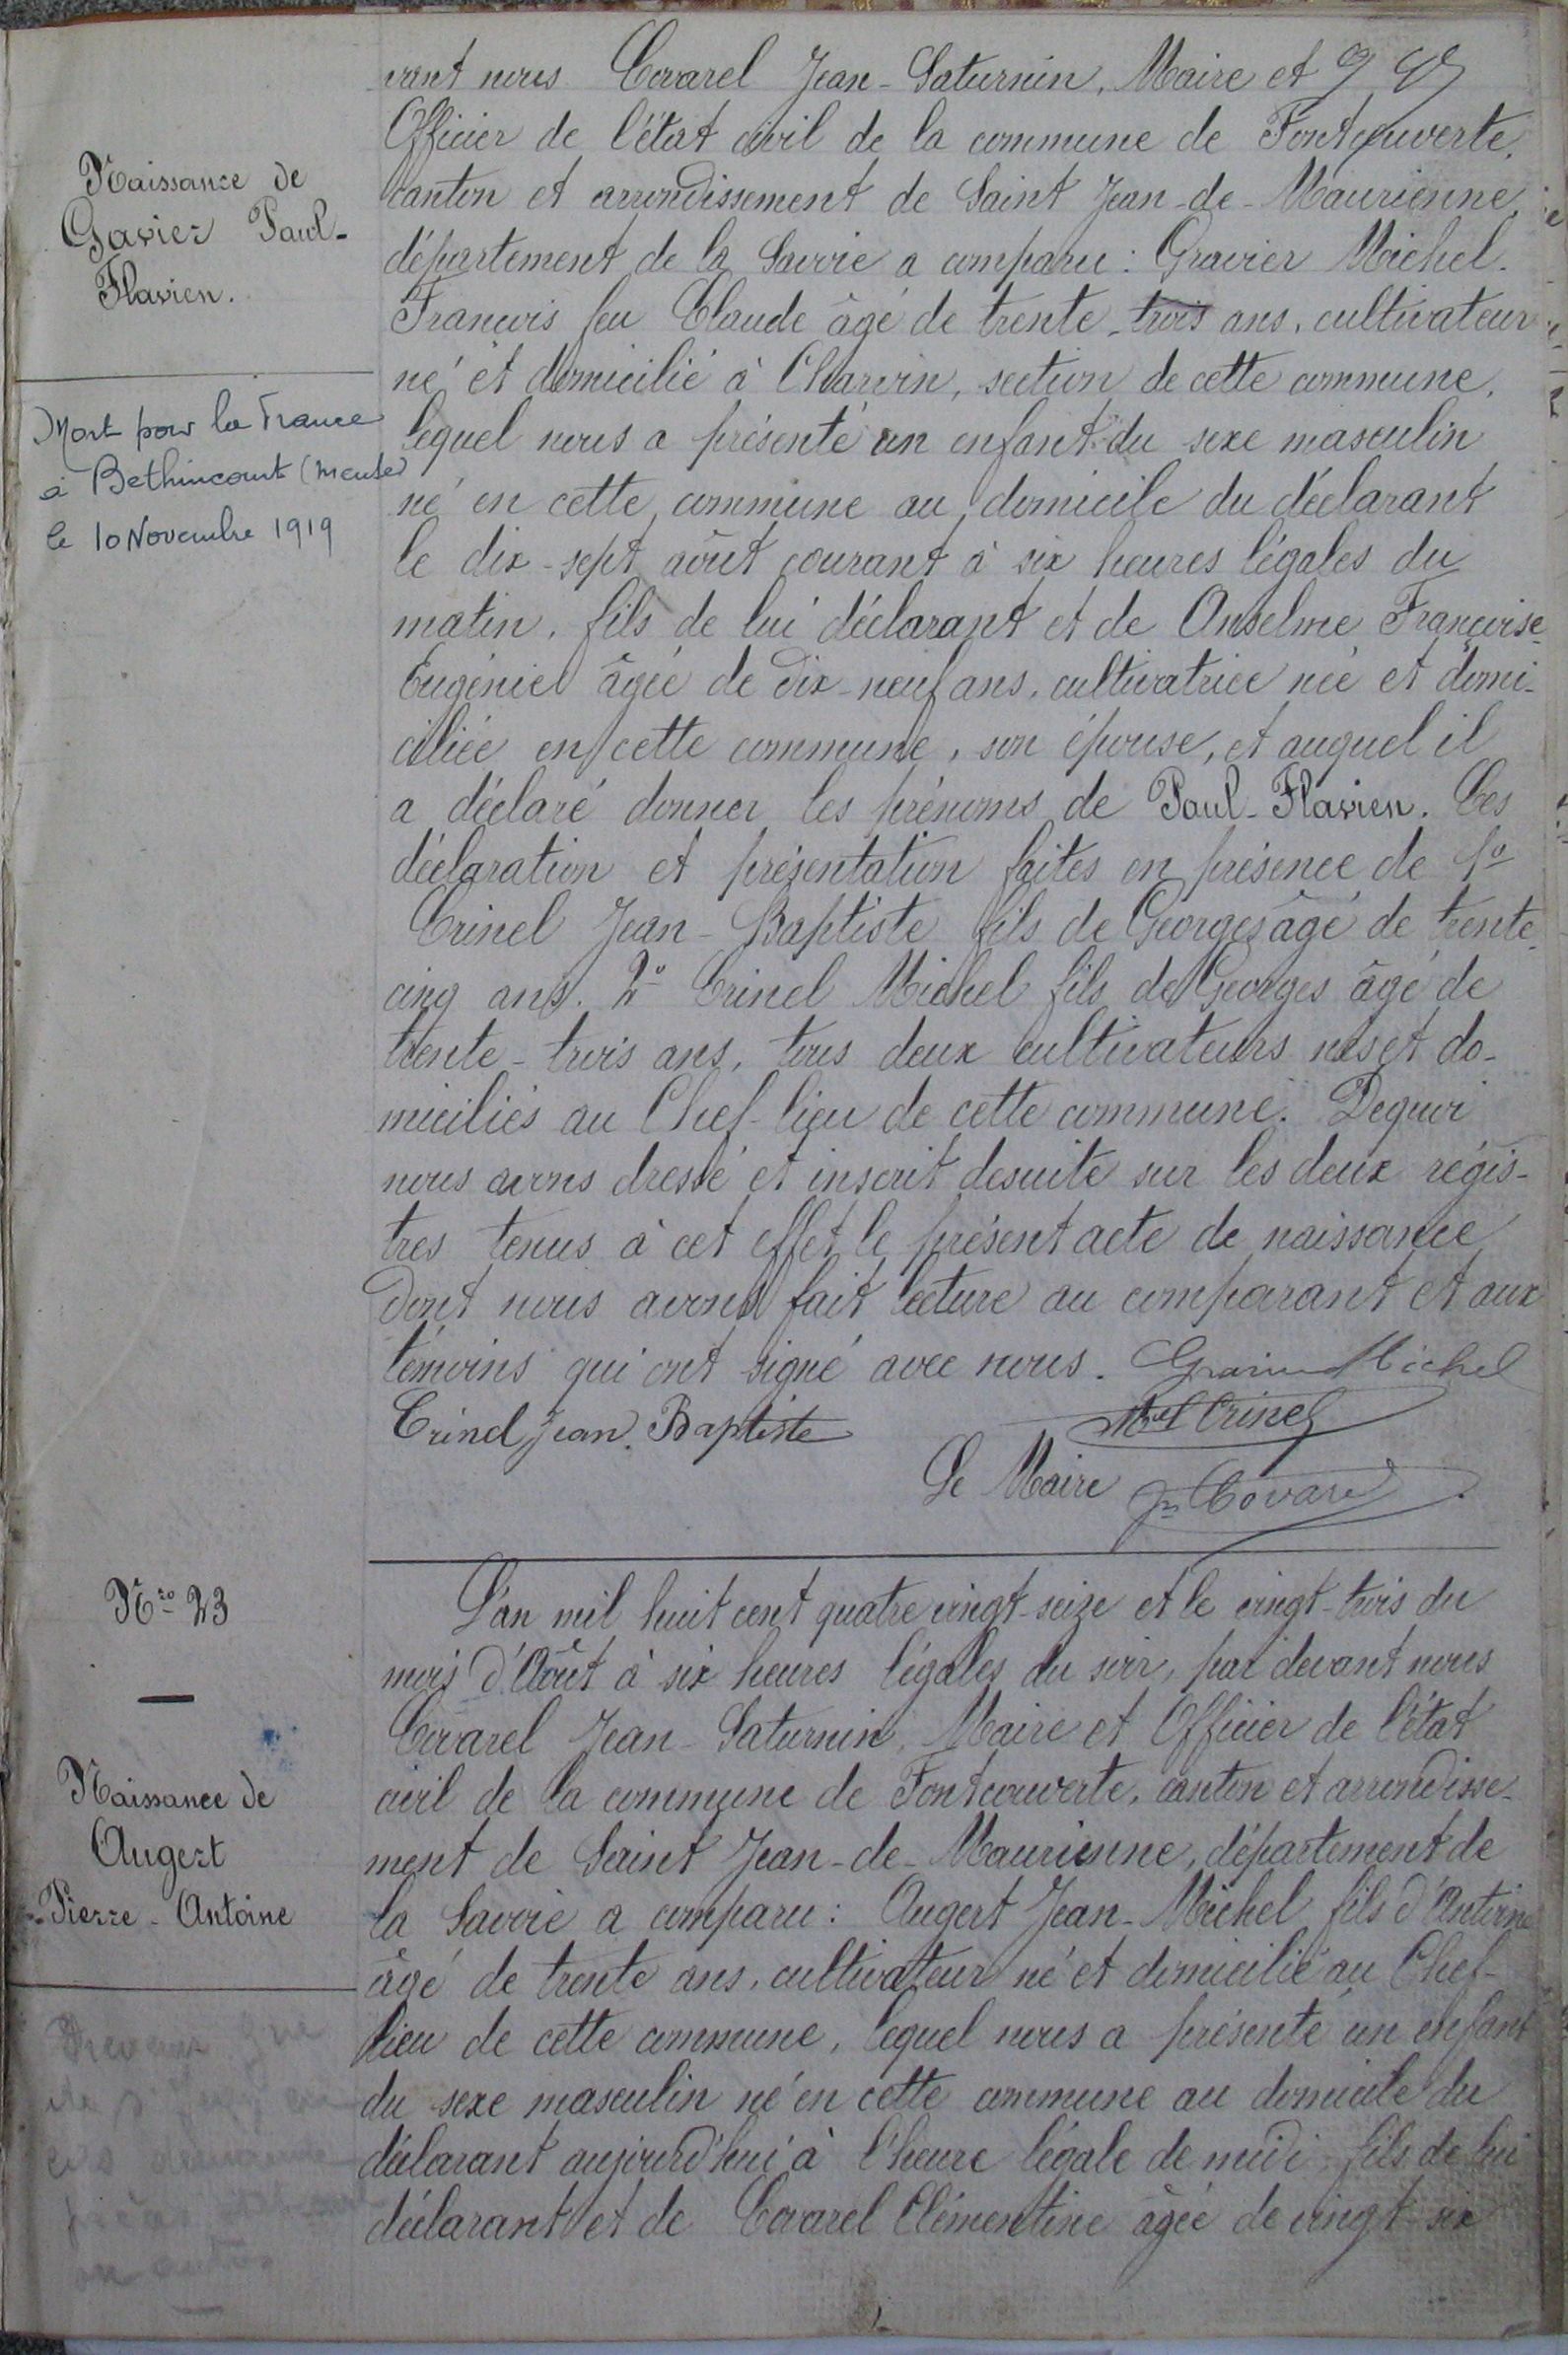 vant nous Covarel Jean-Saturnin, Maire et
Officier de l'état civil de la commune de Fontcouverte,
canton et arrondissement de Saint Jean-de-Maurienne,
département de la Savoie a comparu : Gravier Michel-
François feu Claude âgé de trente-trois ans, cultivateur
né et domicilié à Charvin, section de cette commune,
lequel nous a présenté un enfant du sexe masculin
né en cette commune au domicile du déclarant
le dix-sept août courant à six heures légales du
matin, fils de lui déclarant et de Anselme Françoise-
Eugénie âgée de dix-neuf ans, cultivatrice née et domi-
ciliée en cette commune, son épouse, et auquel il
a déclaré donner les prénoms de Paul-Flavien. Ces
déclaration et présentation faites en présence de 1º
Crinel Jean-Baptiste fils de Georges âgé de trente-
cinq ans. 2º Crinel Michel fils de Georges âgé de
trente-trois ans, tous deux cultivateurs nés et do-
miciliés au Chef-lieu de cette commune. Dequoi
nous avons dressé et inscrit desuite sur les deux régis-
tres tenus à cet effet le présent acte de naissance
dont nous avons fait lecture au comparant et aux
témoins qui ont signé avec nous. Gravier Michel
Crinel Jean Baptiste
Mel Crinel
Le Maire Jn Covarel
Naissance de
Gavier Paul-
Flavien.
Mort pour la France
à Bethincourt (Meuse)
le 10 Novembre 1919
Nro 23
Naissance de
Augert
Pierre-Antoine
L'an mil huit cent quatre vingt-seize et le vingt-trois du
mois d'Août à six heures légales du soir, par devant nous
Covarel Jean-Saturnin, Maire et Officier de l'état
civil de la commune de Fontcouverte, canton et arrondisse-
ment de Saint Jean-de-Maurienne, département de
la Savoie a comparu : Augert Jean-Michel fils d'Antoine
âgé de trente ans, cultivateur né et domicilié au Chef-
lieu de cette commune, lequel nous a présenté un enfant
du sexe masculin né en cette commune au domicile du
déclarant aujourd'hui à l'heure légale de midi, fils de lui
déclarant et de Covarel Clémentine âgée de vingt-six